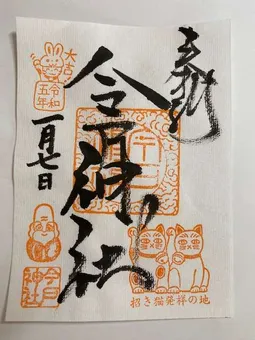 奉拝
今戸神社
大吉
令和
五年
一月七日
今戸
神社
招き猫発祥の地